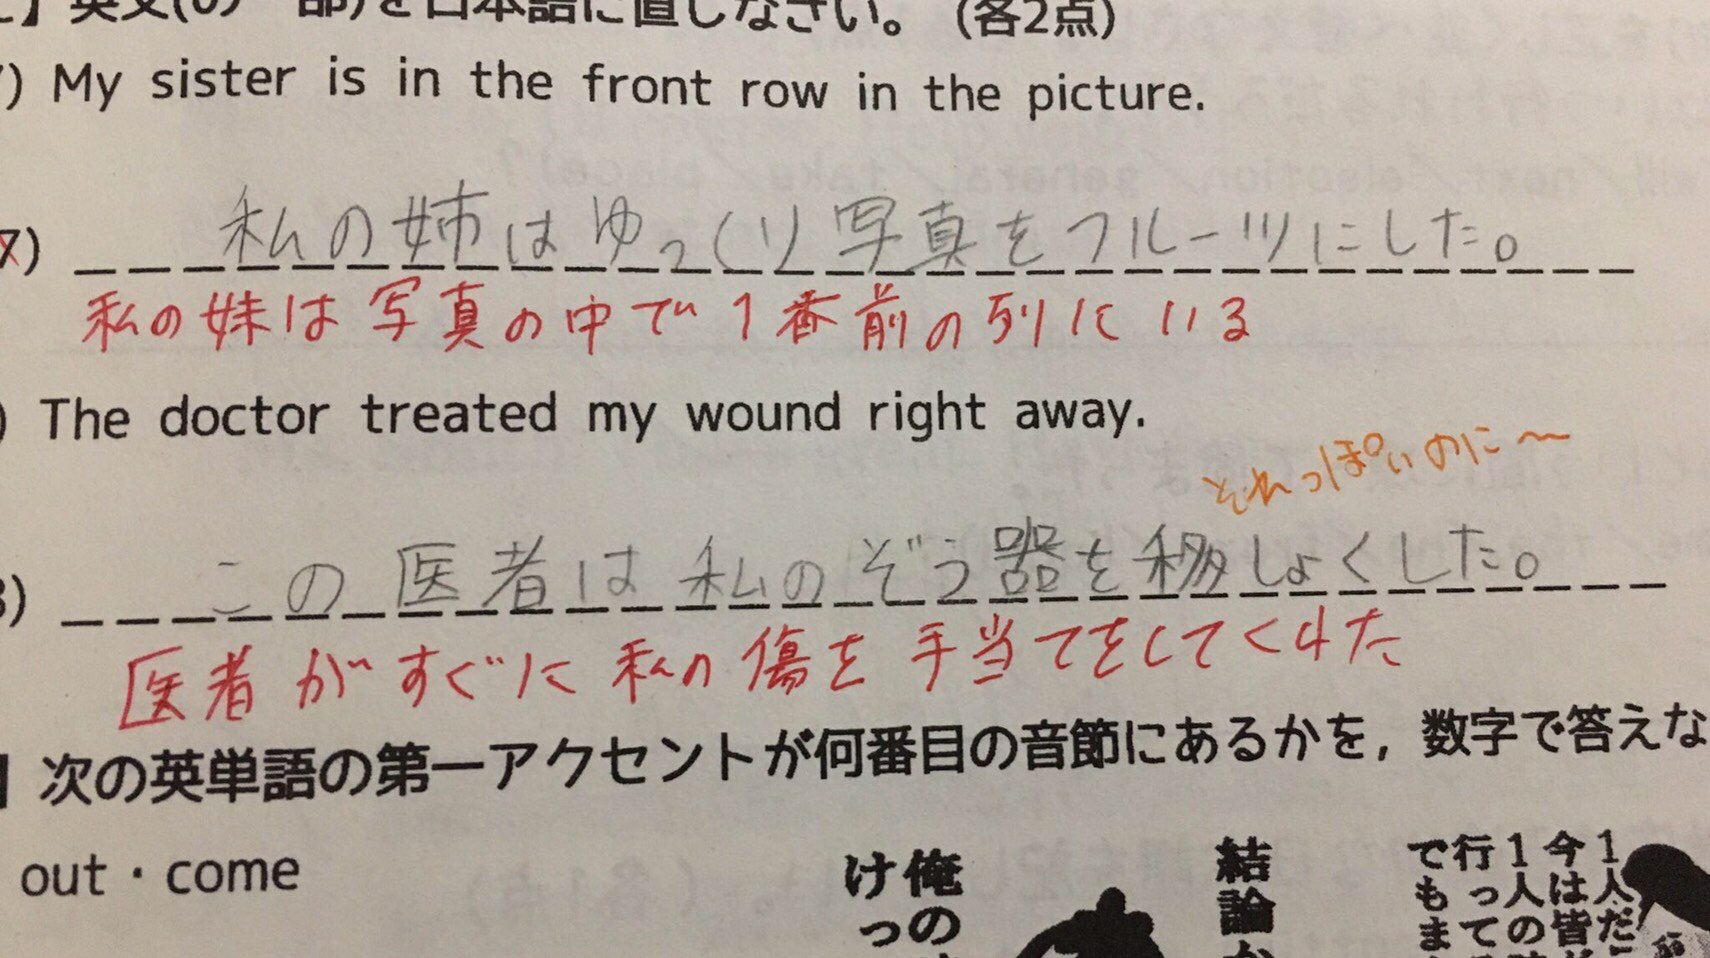 】英文(の一部)を日本語に直しなさい。 (各2点)
) My sister is in the front row in the picture.
) 私の姉はゆっくり写真をフルーツにした。
私の妹は写真の中で1番前の列にいる
) The doctor treated my wound right away.
それっぽいのに〜
) この医者は私のぞう器を移しょくした。
医者がすぐに私の傷を手当てをしてくれた
】次の英単語の第一アクセントが何番目の音節にあるかを, 数字で答えな
out・come
俺の
けっ
結論
1人だ
今は皆
1人の
行って
でもま